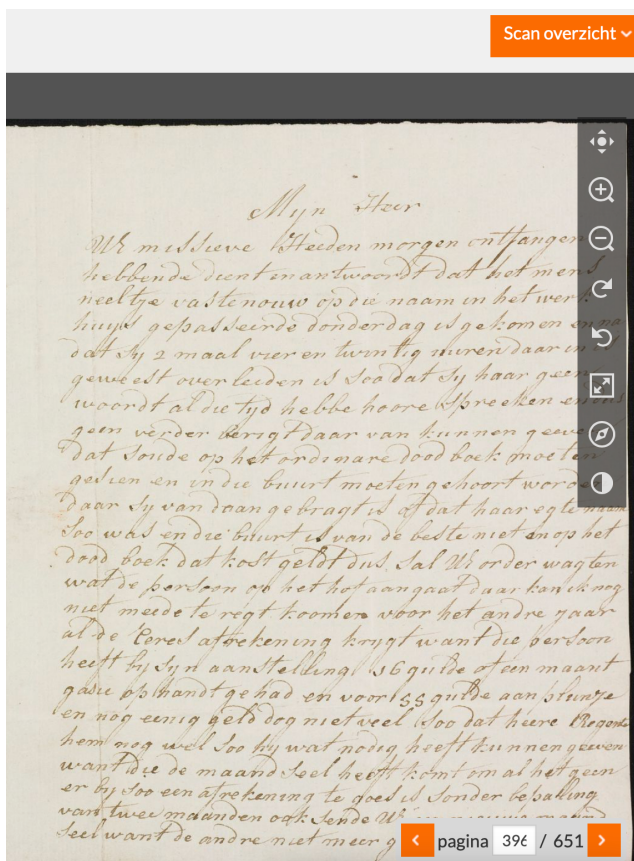 Scan overzicht
Myn Heer
UE missieve Heeden morgen ontfangen
hebbende dient in antwoordt dat het mens
neeltje vastenouw op die naam in het werk
huijs gepasseirde donderdag is gekomen en na
dat sy 2 maal vier en twintig uuren daar in is
geweest over leiden is soo dat sy haar geen
woordt al die tyd hebbe hoore spreeken en dus
geen verder berigt daar van kunnen geeve
dat soude op het ordinare dood boek moeten
gesien en in die buurt moeten gehoort worden
daar sy van daan gebragt is of dat haar egte naam
soo was en die buurt is van de beste niet en op het
dood boek dat kost geldt dus sal UE order wagten
wat de persoon op het hof aangaat daar kan ik nog
niet meede te regt koomen voor het andre jaar
al de Ceres afrekening krygt want die persoon
heeft by syn aanstelling 16 gulde of een maant
gasie op handt gehad en voor 55 gulde aan plunje
en nog eenig geld dog niet veel soo dat heere Regent
hem nog wel soo hy wat nodig heeft kunnen geeven
want die de maand seel heeft komt om al het geen
er by soo een afrekening te goed is sonder bepalling
van twee maanden ook sende UE nieuwe maand
seel want de andre niet meer g
pagina 396 / 651